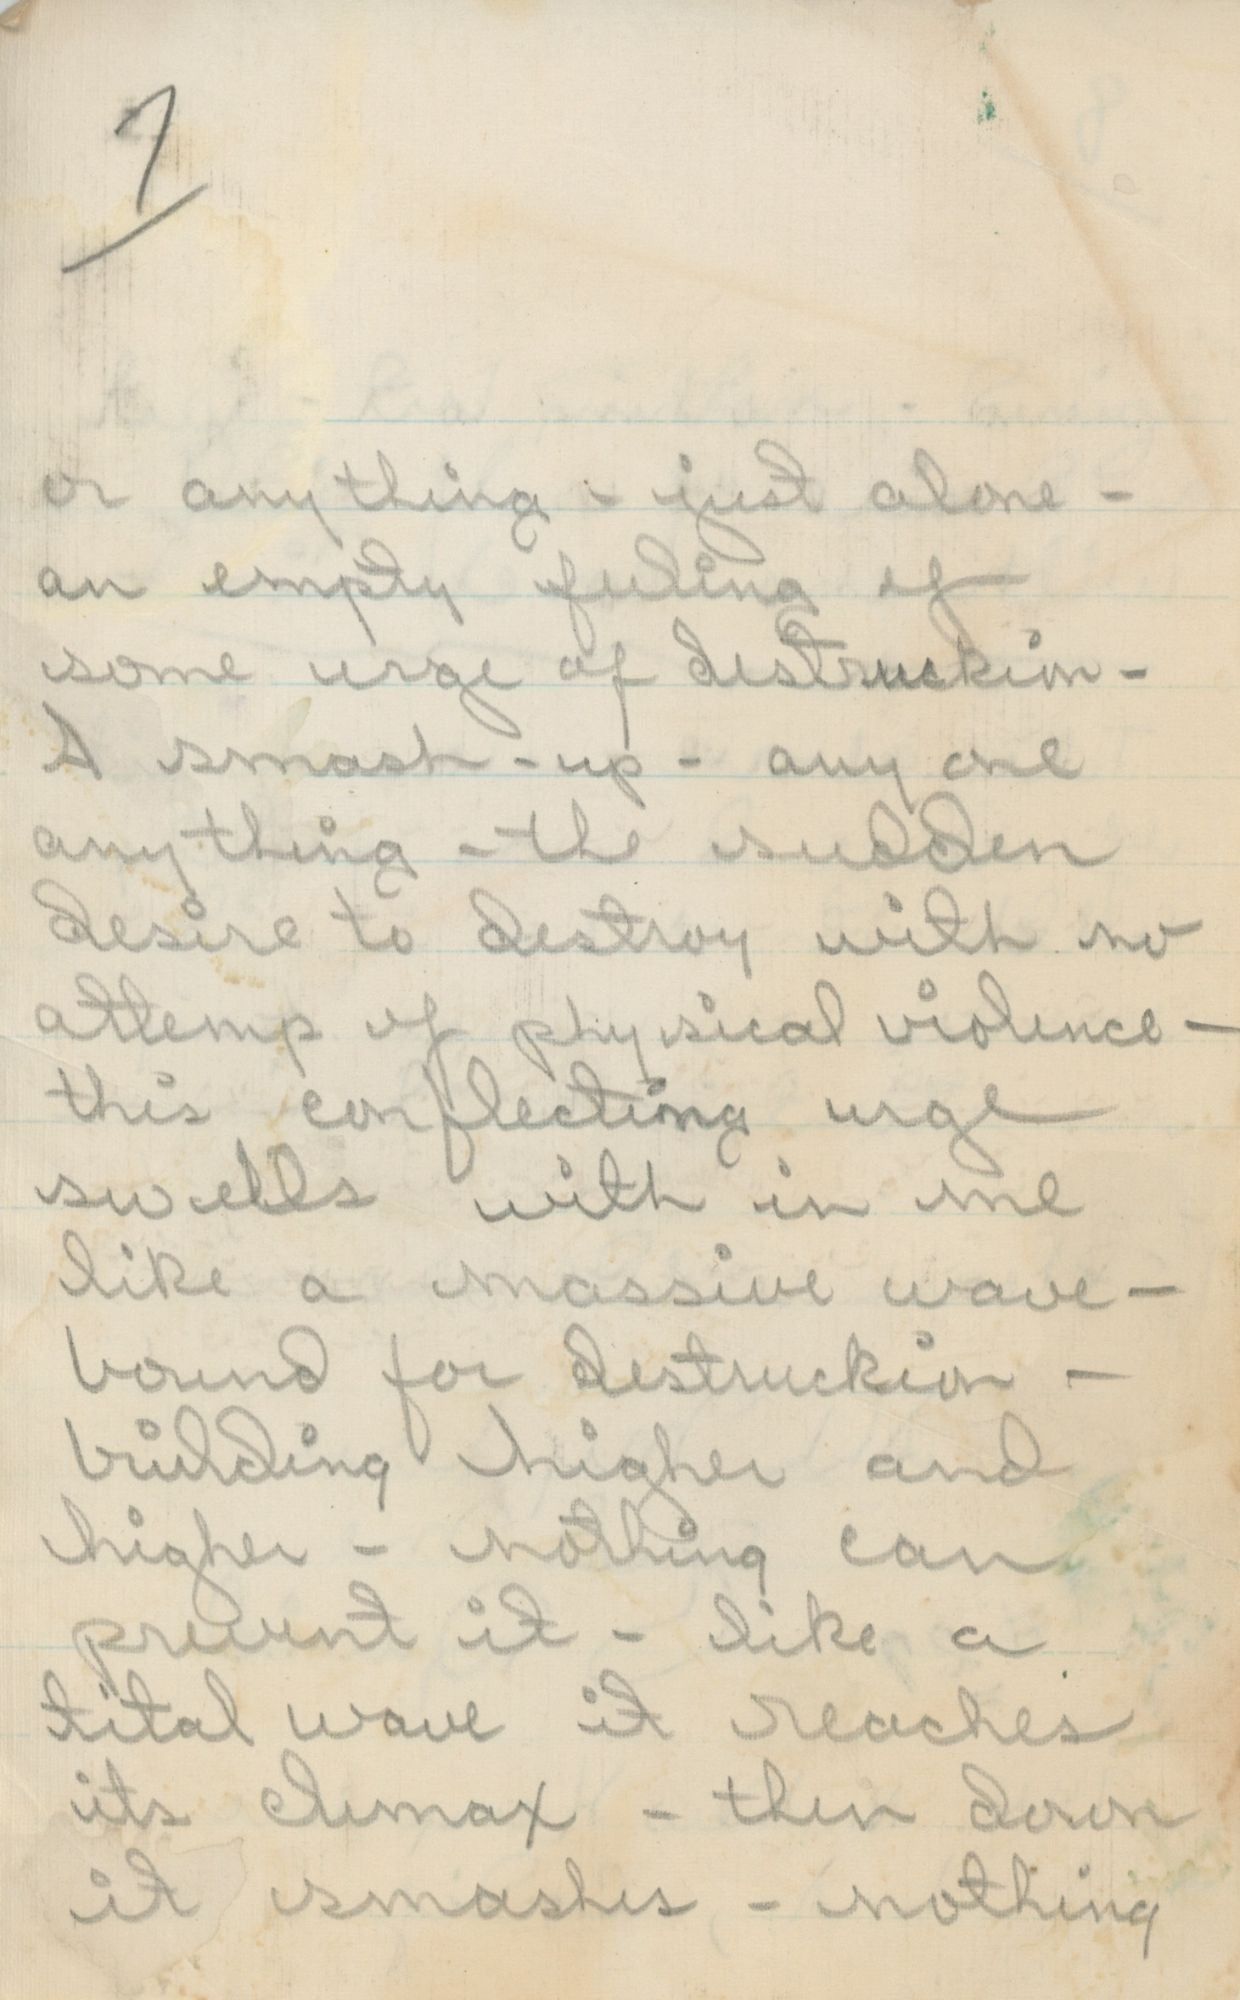 7
or anything - just alone -
an empty feeling of
some urge of destruckion -
A smash - up - any one
anything - the sudden
desire to destroy with no
attemp of physical violence -
this conflecting urge
swells with in me
like a massive wave -
bound for destruckion -
building higher and
higher - nothing can
prevent it - like a
tital wave it reaches
its climax - then down
it smashes - nothing